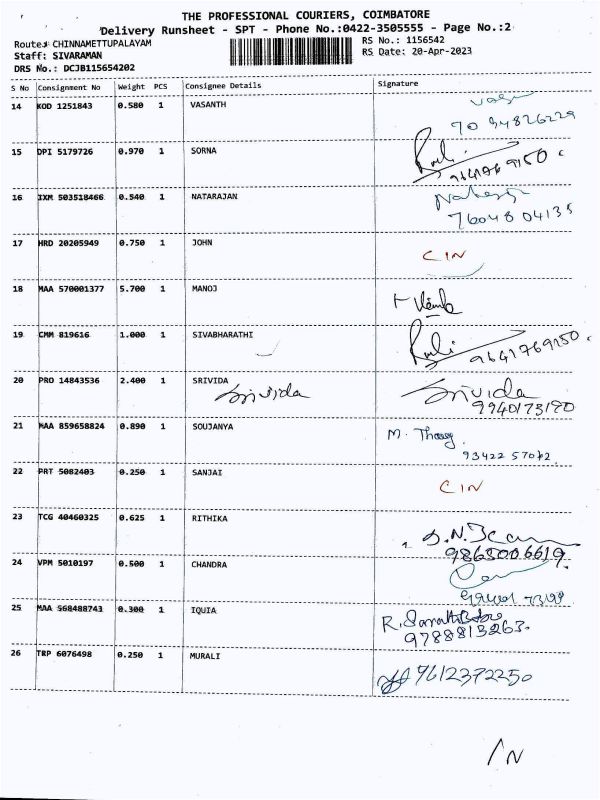 THE PROFESSIONAL COURIERS, COIMBATORE
Delivery Runsheet - SPT - Phone No.:0422-3505555 - Page No.:2
Route: CHINNAMETTUPALAYAM RS No.: 1156542
Staff: SIVARAMAN RS Date: 20-Apr-2023
DRS No.: DCJB115654202
S No Consignment No Weight PCS Consignee Details Signature
14 KOD 1251843 0.580 1 VASANTH
15 DPI 5179726 0.970 1 SORNA
16 IXM 503518466 0.540 1 NATARAJAN
76048 04135
17 HRD 20205949 0.750 1 JOHN CIN
18 MAA 570001377 5.700 1 MANOJ
19 CMM 819616 1.000 1 SIVABHARATHI 9641769150
20 PRO 14843536 2.400 1 SRIVIDA
Srivida Srivida
9940173190
21 MAA 859658824 0.890 1 SOUJANYA
M. Thang
93422 57072
22 PRT 5082403 0.250 1 SANJAI CIN
23 TCG 40460325 0.625 1 RITHIKA
9865006619
24 VPM 5010197 0.500 1 CHANDRA
25 MAA 568488743 0.300 1 IQUIA
9788813263
26 TRP 6076498 0.250 1 MURALI 9612372250